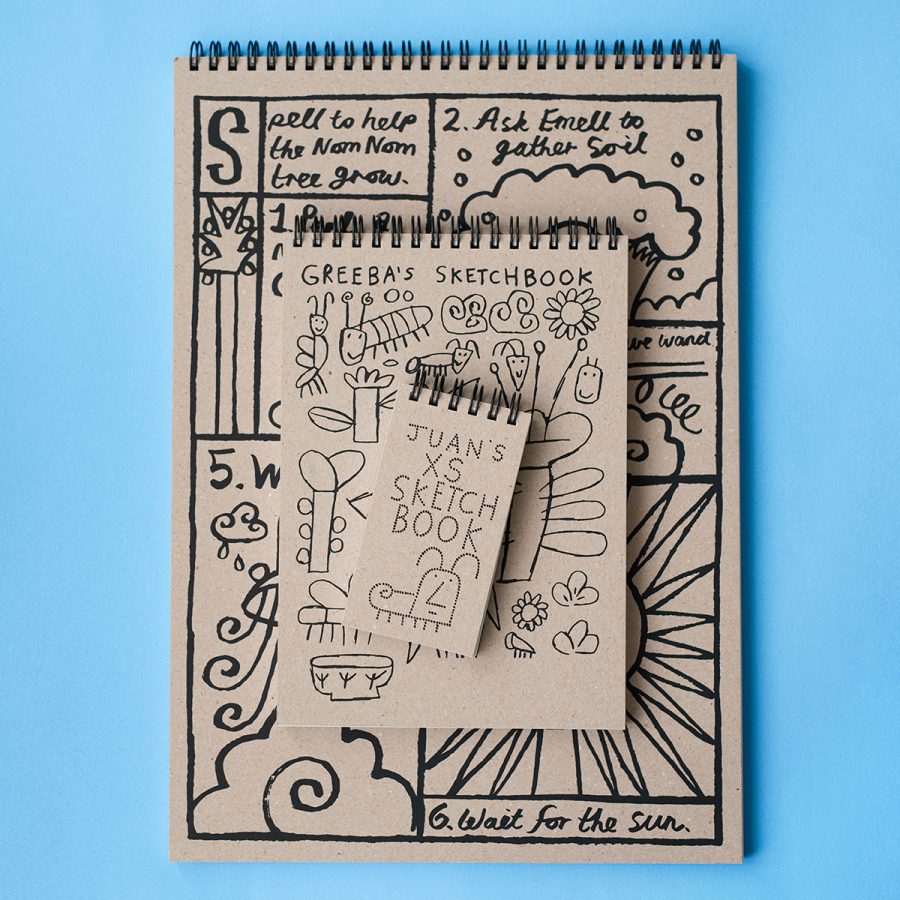 Spell to help
the Nom Nom
tree grow.
2. Ask Emell to
gather Soil
1.
wand
5.
6. Wait for the sun.
GREEBA'S SKETCHBOOK
JUAN'S
XS
SKETCH
BOOK